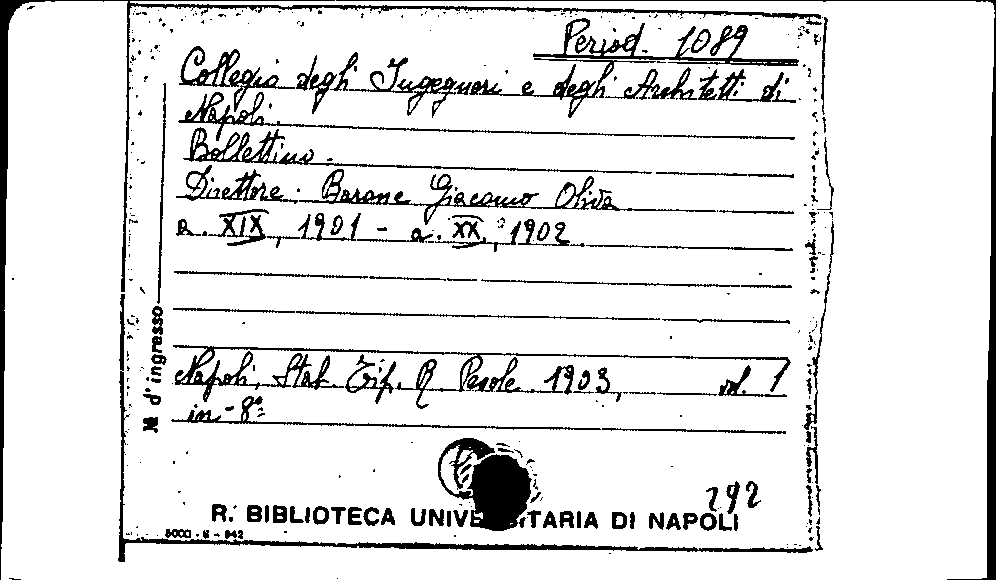 Period. 1089
Collegio degli Ingegneri e degli Architetti di
Napoli.
Bollettino.
Direttore: Barone Giacomo Oliva
a. XIX, 1901 - a. XX, 1902.
Napoli, Stab. Tip. R. Pesole 1903, vol. 1
in-8º
№ d'ingresso
292
R. BIBLIOTECA UNIVE SITARIA DI NAPOLI
5000 - 6 - 942